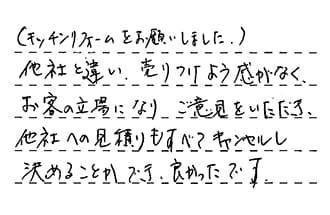 (キッチンリフォームをお願いしました。)
他社と違い、売りつけよう感がなく、
お客の立場になり ご意見をいただき、
他社への見積りもすべてキャンセルし
決めることができ、良かったです。